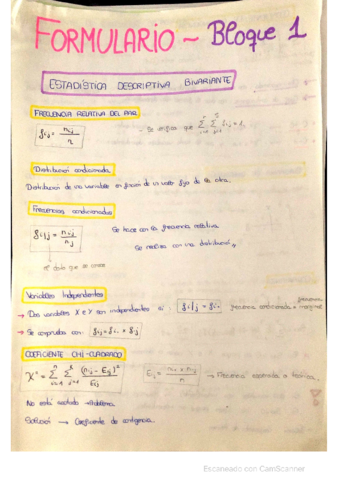 FORMULARIO - Bloque 1
ESTADÍSTICA DESCRIPTIVA BIVARIANTE
FRECUENCIA RELATIVA DEL PAR
fij = nij / n → Se verifica que Σ Σ fij = 1
Distribución condicionada
Distribución de una variable en función de un valor fijo de la otra.
Frecuencias condicionadas
fi|j = nij / nj Se hace con la frecuencia relativa
Se realiza con una distribución
Variables Independientes
→ Dos variables X e Y son independientes si fi|j = fi. frecuencia condicionada = marginal
→ Se comprueba con fij = fi. · f.j
COEFICIENTE CHI-CUADRADO
χ² = Σ Σ (nij - Eij)² / Eij Eij = ni. × n.j / n → Frecuencia esperada o teórica
No está acotado → Problema
Solución → Coeficiente de contingencia.
Escaneado con CamScanner